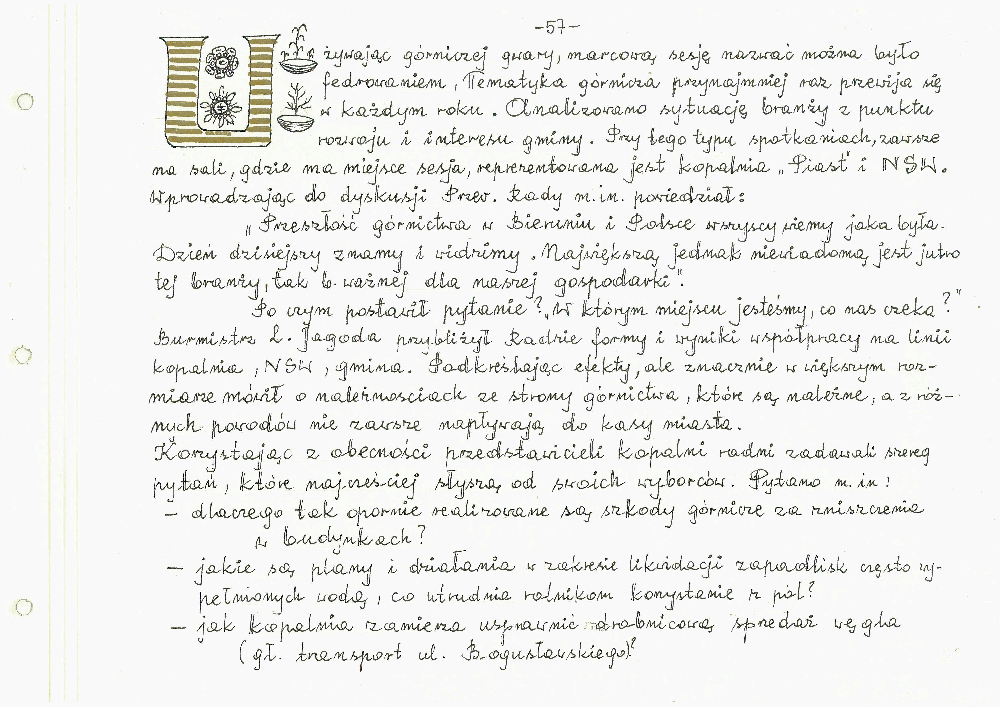 -57-
Używając górniczej gwary, marcową sesję nazwać można było
fedrowaniem. Tematyka górnicza przynajmniej raz przewija się
w każdym roku. Analizowano sytuację branży z punktu
rozwoju i interesu gminy. Przy tego typu spotkaniach, zawsze
na sali, gdzie ma miejsce sesja, reprezentowana jest kopalnia „Piast" i NSW.
Wprowadzając do dyskusji Przew. Rady m.in. powiedział:
„Przeszłość górnictwa w Bieruniu i Polsce wszyscy wiemy jaka była.
Dzień dzisiejszy znamy i widzimy. Największą jednak niewiadomą jest jutro
tej branży, tak b. ważnej dla naszej gospodarki".
Po czym postawił pytanie? „W którym miejscu jesteśmy, co nas czeka?"
Burmistrz L. Jagoda przybliżył Radzie formy i wyniki współpracy na linii
kopalnia, NSW, gmina. Podkreślając efekty, ale znacznie w większym roz-
miarze mówił o należnościach ze strony górnictwa, które są należne, a z róż-
nych powodów nie zawsze napływają do kasy miasta.
Korzystając z obecności przedstawicieli kopalni radni zadawali szereg
pytań, które najczęściej słyszą od swoich wyborców. Pytano m.in:
- dlaczego tak opornie realizowane są szkody górnicze za zniszczenia
w budynkach?
- jakie są plany i działania w zakresie likwidacji zapadlisk często wy-
pełnionych wodą, co utrudnia rolnikom korzystanie z pól?
- jak kopalnia zamierza usprawnić drobnicową sprzedaż węgla
(gł. transport ul. Bogusławskiego)?